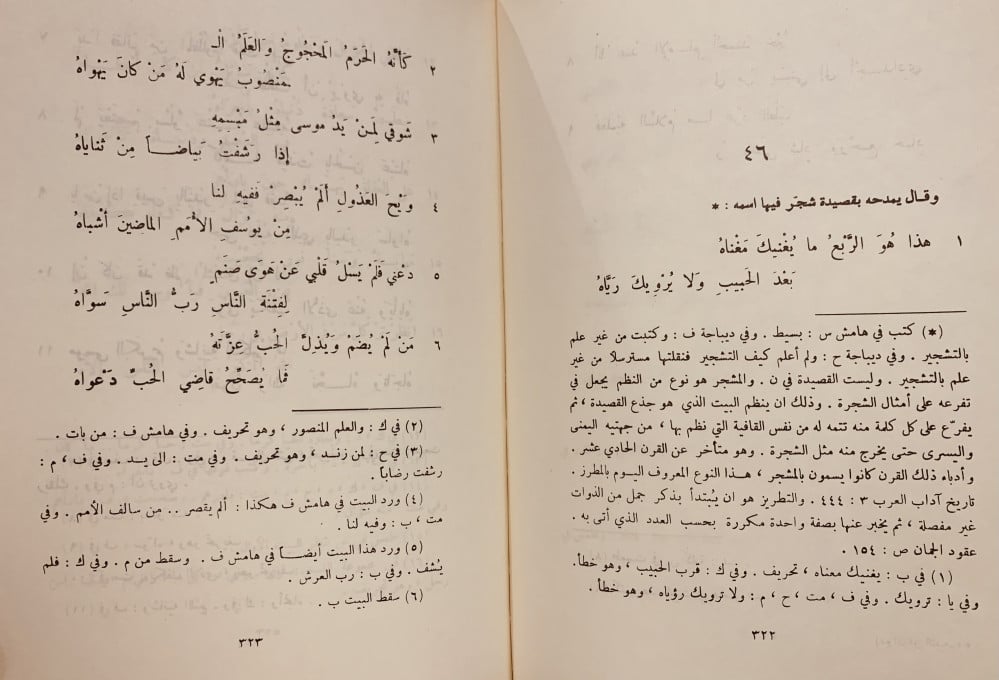 ٤٦
وقال يمدحه بقصيدة شجّر فيها اسمه : *
١ هذا هُوَ الرَّبْعُ ما يُغْنيكَ مَغْناهُ
بَعْدَ الحَبيبِ وَلا يُرْوِيكَ رَيَّاهُ
(*) كتب في هامش س : بسيط . وفي ديباجة ف : وكتبت من غير علم
بالتشجير . وفي ديباجة ح : ولم أعلم كيف التشجير فنقلتها مسترسلاً من غير
علم بالتشجير . وليست القصيدة في ن . والمشجر هو نوع من النظم يجعل في
تفرعه على أمثال الشجرة . وذلك ان ينظم البيت الذي هو جذع القصيدة ، ثم
يفرّع على كل كلمة منه تتمه له من نفس القافية التي نظم بها ، من جهتيه اليمنى
واليسرى حتى يخرج منه مثل الشجرة . وهو متأخر عن القرن الحادي عشر .
وأدباء ذلك القرن كانوا يسمون بالمشجر ، هذا النوع المعروف اليوم بالمطرز .
تاريخ آداب العرب ٣ : ٤٤٤ . والتطريز هو ان يُبتدأ بذكر جمل من الذوات
غير مفصلة ، ثم يخبر عنها بصفة واحدة مكررة بحسب العدد الذي أتى به .
عقود الجمان ص : ١٥٤ .
(١) في ب : يغنيك معناه ، تحريف . وفي ك : قرب الحبيب ، وهو خطأ .
وفي يا : ترويك . وفي ف ، مت ، ح ، م : ولا ترويك رؤياه ، وهو خطأ .
٣٢٢
٢ كَأَنَّهُ الحَرَمُ المَحْجوجُ وَالعَلَمُ الـ
ـمَنْصُوبُ يَهْوي لَهُ مَنْ كانَ يَهْواهُ
٣ شَوقي لِمَنْ يَدُ موسى مِثْلُ مَبْسِمِهِ
إذا رَشَفْتُ بَياضــاً مِنْ ثَناياهُ
٤ وَيْحَ العَذُولِ ألَمْ يُبْصِرْ فَفيهِ لنا
مِنْ يوسُفِ الأمَمِ الماضينَ أشْباهُ
٥ دعْني فَلَمْ يَسْلُ قَلْبي عَنْ هَوَى صَنَمٍ
لِفِتْنَةِ النَّاسِ رَبُّ النَّاسِ سَوَّاهُ
٦ مَنْ لَمْ يُضَمْ وَيُذِلَّ الحُبُّ عِزَّتَهُ
فَما يُصَحِّحُ قاضِي الحُبِّ دَعْواهُ
(٢) في ك : والعلم المنصور ، وهو تحريف . وفي هامش ف : من بات .
(٣) في ح : لمن زند ، وهو تحريف . وفي مت : الى يد . وفي ف ، م :
رشفت رضاباً .
(٤) ورد البيت في هامش ف هكذا : ألم يقصر .. من سالف الأمم . وفي
مت ، ب : وفيه لنا .
(٥) ورد هذا البيت أيضــاً في هامش ف . وسقط من م . وفي ك : فلم
يُشف . وفي ب : رب العرش .
(٦) سقط البيت ب .
٣٢٣